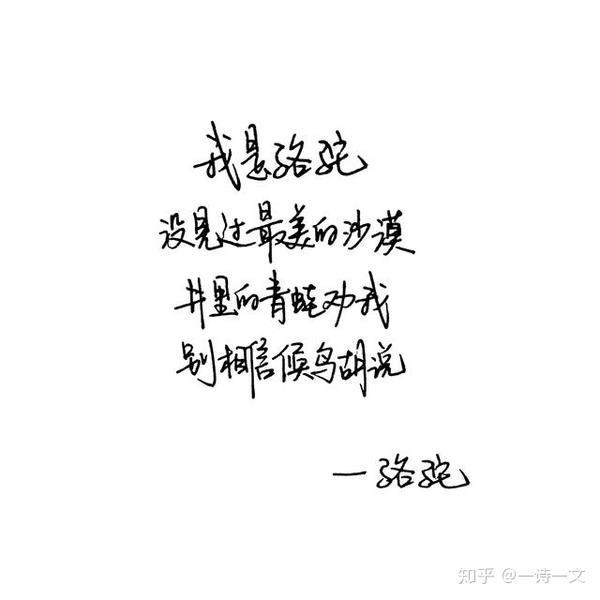 我是骆驼
没见过最美的沙漠
井里的青蛙劝我
别相信候鸟胡说
—骆驼
知乎 @一诗一文